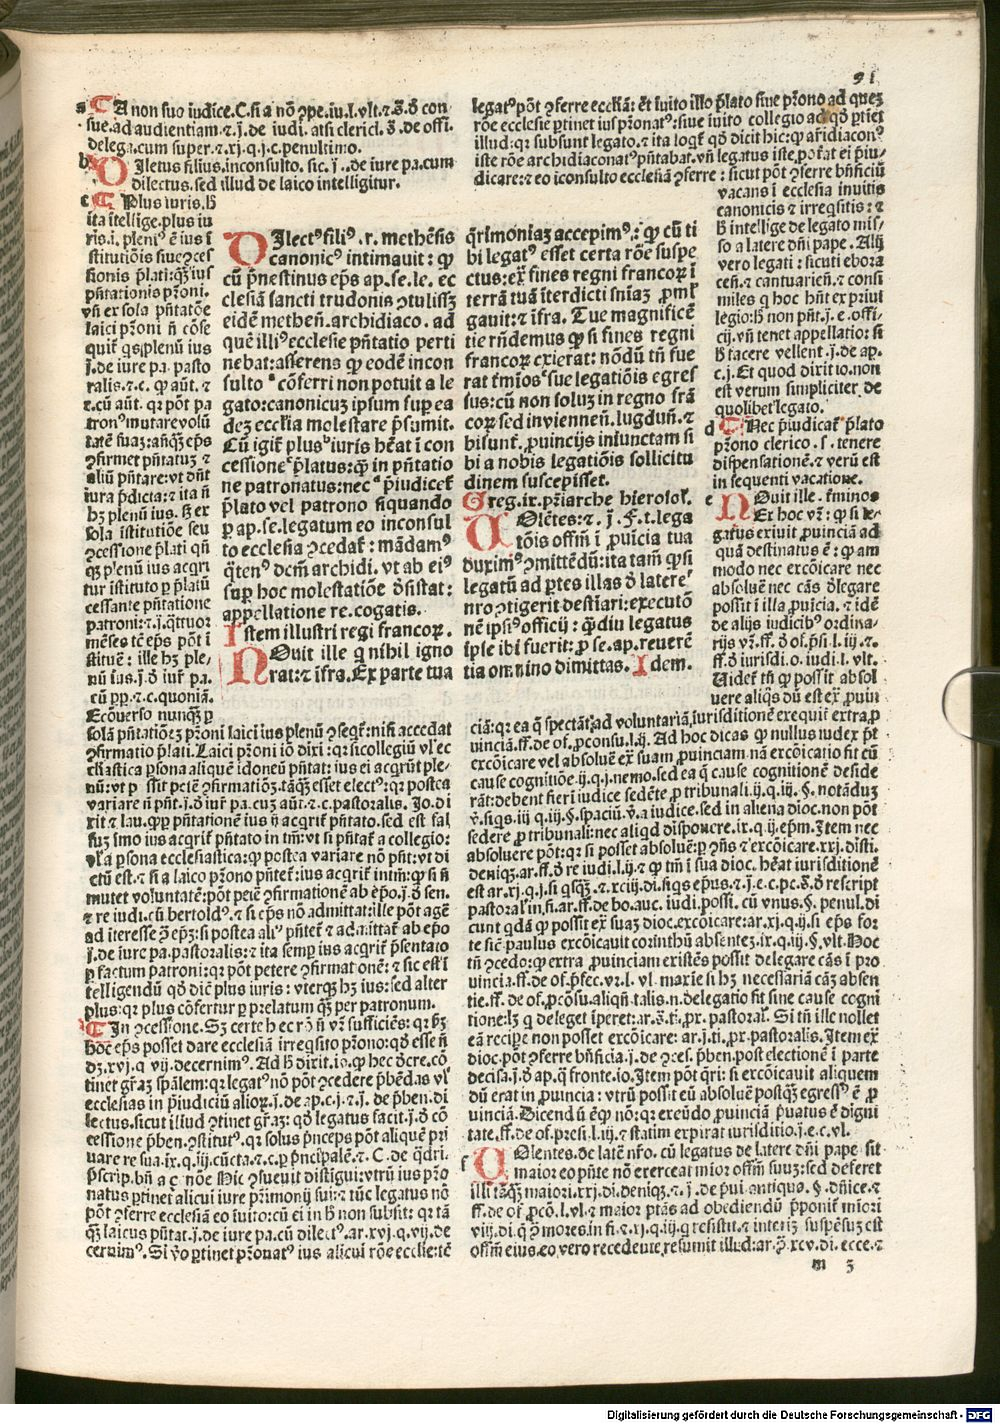 91
A non suo iudice. C. si a nō ɔpe. iu. l. vlt. ⁊ ʒ. ð con
sue. ad audientiam. ⁊ j. de iudi. atsi clerici. ð. de offi.
delega. cum super. ⁊ xj. q. j. c. penultimo.
b Dlectus filius. inconsulto. sic. j .. de iure pa. cum
dilectus. sed illud de laico intelligitur.
c Plus iuris. ħ
ita ītellige. plus iu
ris. i. pleniꝰ ē ius ī
laici pꝛoni n̄ cōse
j. de iure pa. pasto
tronꝰ mutare volū
tatē suaʒ: añqʒ eps
ꝯfirmet pñtatuʒ ⁊
aliū pñtare: vt dn̄t
iura p̄dicta: ⁊ ita n̄
hʒ plenū ius. sʒ ex
sola īstitutiōe seu
ꝯcessione p̄lati qn̄
cessante pñtatione
patroni: ⁊ j. q̄ttuor
mēses tē eps pōt ī
stituē: ille hʒ ple-
nū ius. j. ð iur̄ pa.
cū pp. ⁊ c. quoniā.
Ecōuerso nunqʒ p
DIlectꝰ filiꝰ . r. methēsis
canonicꝰ intimauit: ꝙ
cū p̄nestinus eps ap. se. le. ec
clesiā sancti trudonis ꝯtulissʒ
eidē metheñ. archidiaco. ad
quē illiꝰ ecclesie pñtatio perti
nebat: asserens ꝙ eodē incon
sulto ᵃ cōferri non potuit a le
gato: canonicuʒ ipsum sup ea
deʒ ecclīa molestare p̄sumit.
Cū igit̄ plusᵇ iuris heāt ī con
cessione ᶜp̄latus: qʒ in pñtatio
ne patronatus: nec ᵈ p̄iudicet̄
p̄lato vel patrono siquando
ꝑ ap. se. legatum eo inconsul
to ecclesia ꝯcedat̄: mādamꝰ
q̄tenꝰ dcm̄ archidi. vt ab eiꝰ
sup hoc molestatiōe ðsistat:
appellatione re. cogatis.
Istem illustri regi francoꝝ.
NOuit ille q nihil igno
rat: ⁊ īfra. Ex parte tua
q̄rimoniaʒ accepimꝰ: ꝙ cū ti
bi legatꝰ esset certa rōe suspe
ctus: ex̄ fines regni francoꝝ ī
terrā tuā īterdicti sn̄iaʒ ꝓml̄
gauit: ⁊ īfra. Tue magnificē
tie rn̄demus ꝙ si fines regni
francoꝝ exierat: nōdū tn̄ fue
rat t̄mīosᵉ sue legatiōis egres
sus: cū non soluʒ in regno frā
coꝝ sed in vienneñ. lugduñ. ⁊
bisunt̄. ꝓuincijs iniunctam si
bi a nobis legatiōis sollicitu
dinem suscepisset.
Greg. ix. p̄riarche hierosoĺ.
VOlētes: ⁊. j. F. t. lega
tōis offm̄ ī ꝓuīcia tua
duximꝰ ꝯmittēdū: ita tam̄ ꝙ si
legatū ad ꝑtes illas ð latereᶠ
nr̄o ꝯtigerit destīari: executō
nē ipsiꝰ officij: q̄diu legatus
ipse ibi fuerit: ꝓ se. ap. reuerē
tia omnino dimittas. Idem.
legatꝰ pōt ꝯferre ecclīā: ēt īuito illo p̄lato siue pꝛono ad queʒ
rōe ecclesie ꝑtinet ius pꝛonatꝰ: siue īuito collegio ad qð ꝑtiēt
illud: qꝛ subsunt legato. ⁊ ita loqt̄ qð dicit hic: ꝙ ar̄idiaconꝰ
iste rōe archidiaconatꝰ pñtabat. vñ legatus iste potāt ei p̄iu-
dicare: ⁊ eo īconsulto ecclesiā ꝯferre: sicut pōt ꝯferre bn̄ficiū
vacans ī ecclesia inuitis
canonicis ⁊ irreqsitis: ⁊
ħ intellige de legato mis-
so a latere dn̄i pape. Alij
vero legati: sicuti ebora
ceñ. ⁊ cantuarieñ. ⁊ consi
miles q hoc hn̄t ex pꝛiui
legio: ħ non pn̄t. j. e. offi-
cij. vñ tenet appellatio: si
ħ facere vellent. j. de ap.
c. j. Et quod dixit io. non
est verum simpliciter de
quolibet legato.
d Nec p̄iudicat̄ p̄lato
pꝛono clerico. s. tenere
dispensationē. ⁊ verū est
in sequenti vacatione.
e NOuit ille. t̄minos
Ex hoc vꝛ: ꝙ si le-
gatus exiuit ꝓuinciā ad
quā destinatus ē: ꝙ am
modo nec excōicare nec
absoluē nec cās ðlegare
possit ī illa ꝓuīcia. ⁊ idē
de alijs iudicibꝰ ordina-
rijs vꝛ. ff. ð of. p̄si. l. iij. ⁊
ff. ð iurisdi. o. iudi. l. vlt.
Uidet̄ tn̄ ꝙ possit absol
uere aliq̄s dū est ex̄ ꝓuin
solā pñtatiōeʒ pꝛoni laici ius plenū ꝯseqt̄: nisi accedat
ꝯfirmatio p̄lati. Laici pꝛoni iō dixi: qꝛ si collegiū vl̄ ec
clīastica ꝑsona aliquē idoneū pñtat: ius ei acqrit̄ ple-
nū: vt possit petē ꝯfirmatiōeʒ. tāqʒ esset electꝰ: qꝛ postea
variare n̄ pn̄t. j. ð iur̄ pa. cuʒ aūt. ⁊ c. pastoralis. Jo. di
xit ⁊ lau. ꝙ ꝑ pñtationē ius ij acqrit̄ pñtato. sed est fal
suʒ īmo ius acqrit̄ pñtato in tm̄: vt si pñtat̄ a collegio:
vl̄ a ꝑsona ecclesiastica: ꝙ postea variare nō pn̄t: vt di
ctū est. ⁊ si a laico pꝛono pñtet̄: ius acqrit̄ intm̄: ꝙ si n̄
mutet voluntatē: pōt petē ꝯfirmationē ab ep̄o. j. ð sen.
⁊ re iudi. cū bertoldꝰ. ⁊ si eps nō admittat: ille pōt agē
ad īteresse ꝯ epʒ: si postea aliꝰ pñtet̄ ⁊ admittat̄ ab epo
j. de iure pa. pastoralis: ⁊ ita semp ius acqrit̄ p̄sentato
ꝑ factum patroni: qꝛ pōt petere ꝯfirmationē: ⁊ sic est ī
telligendū qð dic̄ plus iuris: vterqʒ hʒ ius: sed alter
plus: qꝛ plus cōfertur ꝑ prelatum qʒ per patronum.
In ꝯcessione. Sʒ certe hec rō n̄ vꝛ sufficiēs: qꝛ ꝑ
hoc eps posset dare ecclesiā irreqsito pꝛono: qð esse n̄
dʒ. xvj. q. vij. decernimꝰ. Ad ħ dixit. io. ꝙ hec ðcre. cō
tinet gr̄aʒ spālem: qꝛ legatꝰ nō pōt ꝯcedere p̄bēdas vl̄
ecclesias in p̄iudiciū alioꝝ. j. de ap. c. j. ⁊ j. de p̄ben. di
lectus. sicut illud ꝯtinet gr̄aʒ: qð legatus facit. j. ð cō
cessione p̄ben. ꝯstitutꝰ. qꝛ solus p̄nceps pōt aliquē pri
uare re sua. ix. q. iij. cūcta. ⁊ c. ꝑ p̄ncipalē. ⁊ C. de q̄dri.
p̄scrip. bn̄ a c nōe Hic ꝯsueuit distigui: vtrū ius pꝛo
natus ꝑtinet alicui iure pꝛimonij sui: ⁊ tūc legatus nō
pōt ꝯferre ecclesiā eo īuito: cū ei in ħ non subsit: qꝛ tā
qʒ laicus pñtat. j. de iure pa. cū dilectꝰ. ar. xvj. q. vij. de
cernimꝰ. Si v̄o ꝑtinet pꝛonatꝰ ius alicui rōe ecclīe: tē
ciā: qꝛ ea q̄ spectāt ad voluntariā, iurisditionē exequit̄ extra ꝓ
uinciā. ff. de of. ꝓconsu. l. ij. Ad hoc dicas ꝙ nullus iudex pōt
excōicare vel absoluē ex̄ suam ꝓuinciam nā excōicatio fit cū
cause cognitiōe. ij. q. j. nemo. sed ea q̄ cause cognitionē deside
rāt: debent fieri iudice sedēte ꝓ tribunali. ij. q. ij. §. notādum
v̄. siqs. iij. q. iij. §. spaciū. v̄. a iudice. sed in aliena dioc. non pōt
sedere ꝓ tribunali: nec aliqd disponere. ix. q. ij. ep̄m. Item nec
absoluere pōt: qꝛ si posset absoluē: ꝑ ꝯn̄s ⁊ excōicare. xxj. disti.
deniqʒ. ar. ff. ð re iudi. l. ij. ⁊ ꝙ tm̄ ī sua dioc. heāt iurisditionē
est ar. xj. q. j. si qsqʒ. ⁊. xciij. di. siqs epus. ⁊ j. e. c. pe. ʒ. ð rescript
pastoral̄. in fi. ar. ff. de bo. auc. iudi. possi. cū vnus. §. penul. di
cunt qdā ꝙ possit ex̄ suaʒ dioc. excōicare: ar. xj. q. ij. si eps for
te sic̄ paulus excōicauit corinthū absenteʒ. ix. q. iij. §. vlt. Hoc
tn̄ ꝯcedo: ꝙ extra ꝓuinciam existēs possit delegare cās ī pro
uincia. ff. de of. p̄fec. vꝛ. l. vl̄. maxie si hʒ necessariā cāʒ absen
tie. ff. de of. ꝓcōsu. aliqn̄. talis. n. delegatio fit sine cause cogni
tione: lʒ q deleget īperet: ar. ʒ. ti. pꝛ. pastoral̄. Si tn̄ ille nollet
eā recipe non posset excōicare: ar. j. ti. pꝛ. pastoralis. Item ex̄
dioc. pōt ꝯferre bn̄ficia. j. de ꝯces. p̄ben. post electionē ī parte
decisa. j. ð ap. q̄ fronte. io. Item pōt q̄ri: si excōicauit aliquem
dū erat in ꝓuincia: vtrū possit eū absoluē postqʒ egressꝰ ē ꝓ
uinciā. Dicendū ē ꝙ nō: qꝛ exeūdo ꝓuinciā p̄uatus ē digni
tate. ff. de of. presi. l. iij. ⁊ statim expirat iurisditio. j. e. c. vl.
f VOlentes. de latē nr̄o. cū legatus de latere dn̄i pape sit
maior eo pn̄te nō exerceat mior offm̄ suuʒ: sed deferet
illi tāqʒ maiori. xxj. di. deniqʒ. ⁊. j. de p̄ui. antiqua. §. dn̄ice. ⁊
ff. de of. ꝓcō. l. vl. ⁊ maior ptās ad obediendū p̄ponit̄ mīori
viij. di. q̄ ꝯ mores. in fi. ⁊. xj. q. iij. q resistit. ⁊ interiʒ suspēsuʒ est
offm̄ eius. eo vero recedente resumit illud: ar. ꝯ. xcv. di. ecce. ⁊
m 3
Digitalisierung gefördert durch die Deutsche Forschungsgemeinschaft - DFG